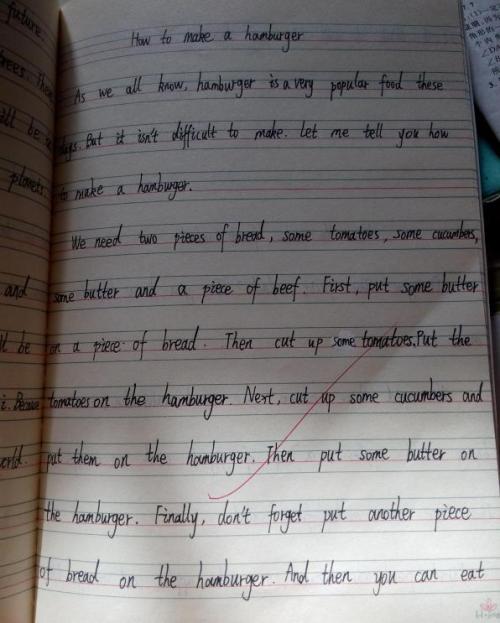 How to make a hamburger
As we all know, hamburger is a very popular food these
days. But it isn't difficult to make. Let me tell you how
to make a hamburger.
We need two pieces of bread, some tomatoes, some cucumbers,
and some butter and a piece of beef. First, put some butter
on a piece of bread. Then cut up some tomatoes. Put the
tomatoes on the hamburger. Next, cut up some cucumbers and
put them on the hamburger. Then put some butter on
the hamburger. Finally, don't forget put another piece
of bread on the hamburger. And then you can eat
future
planets
and
be